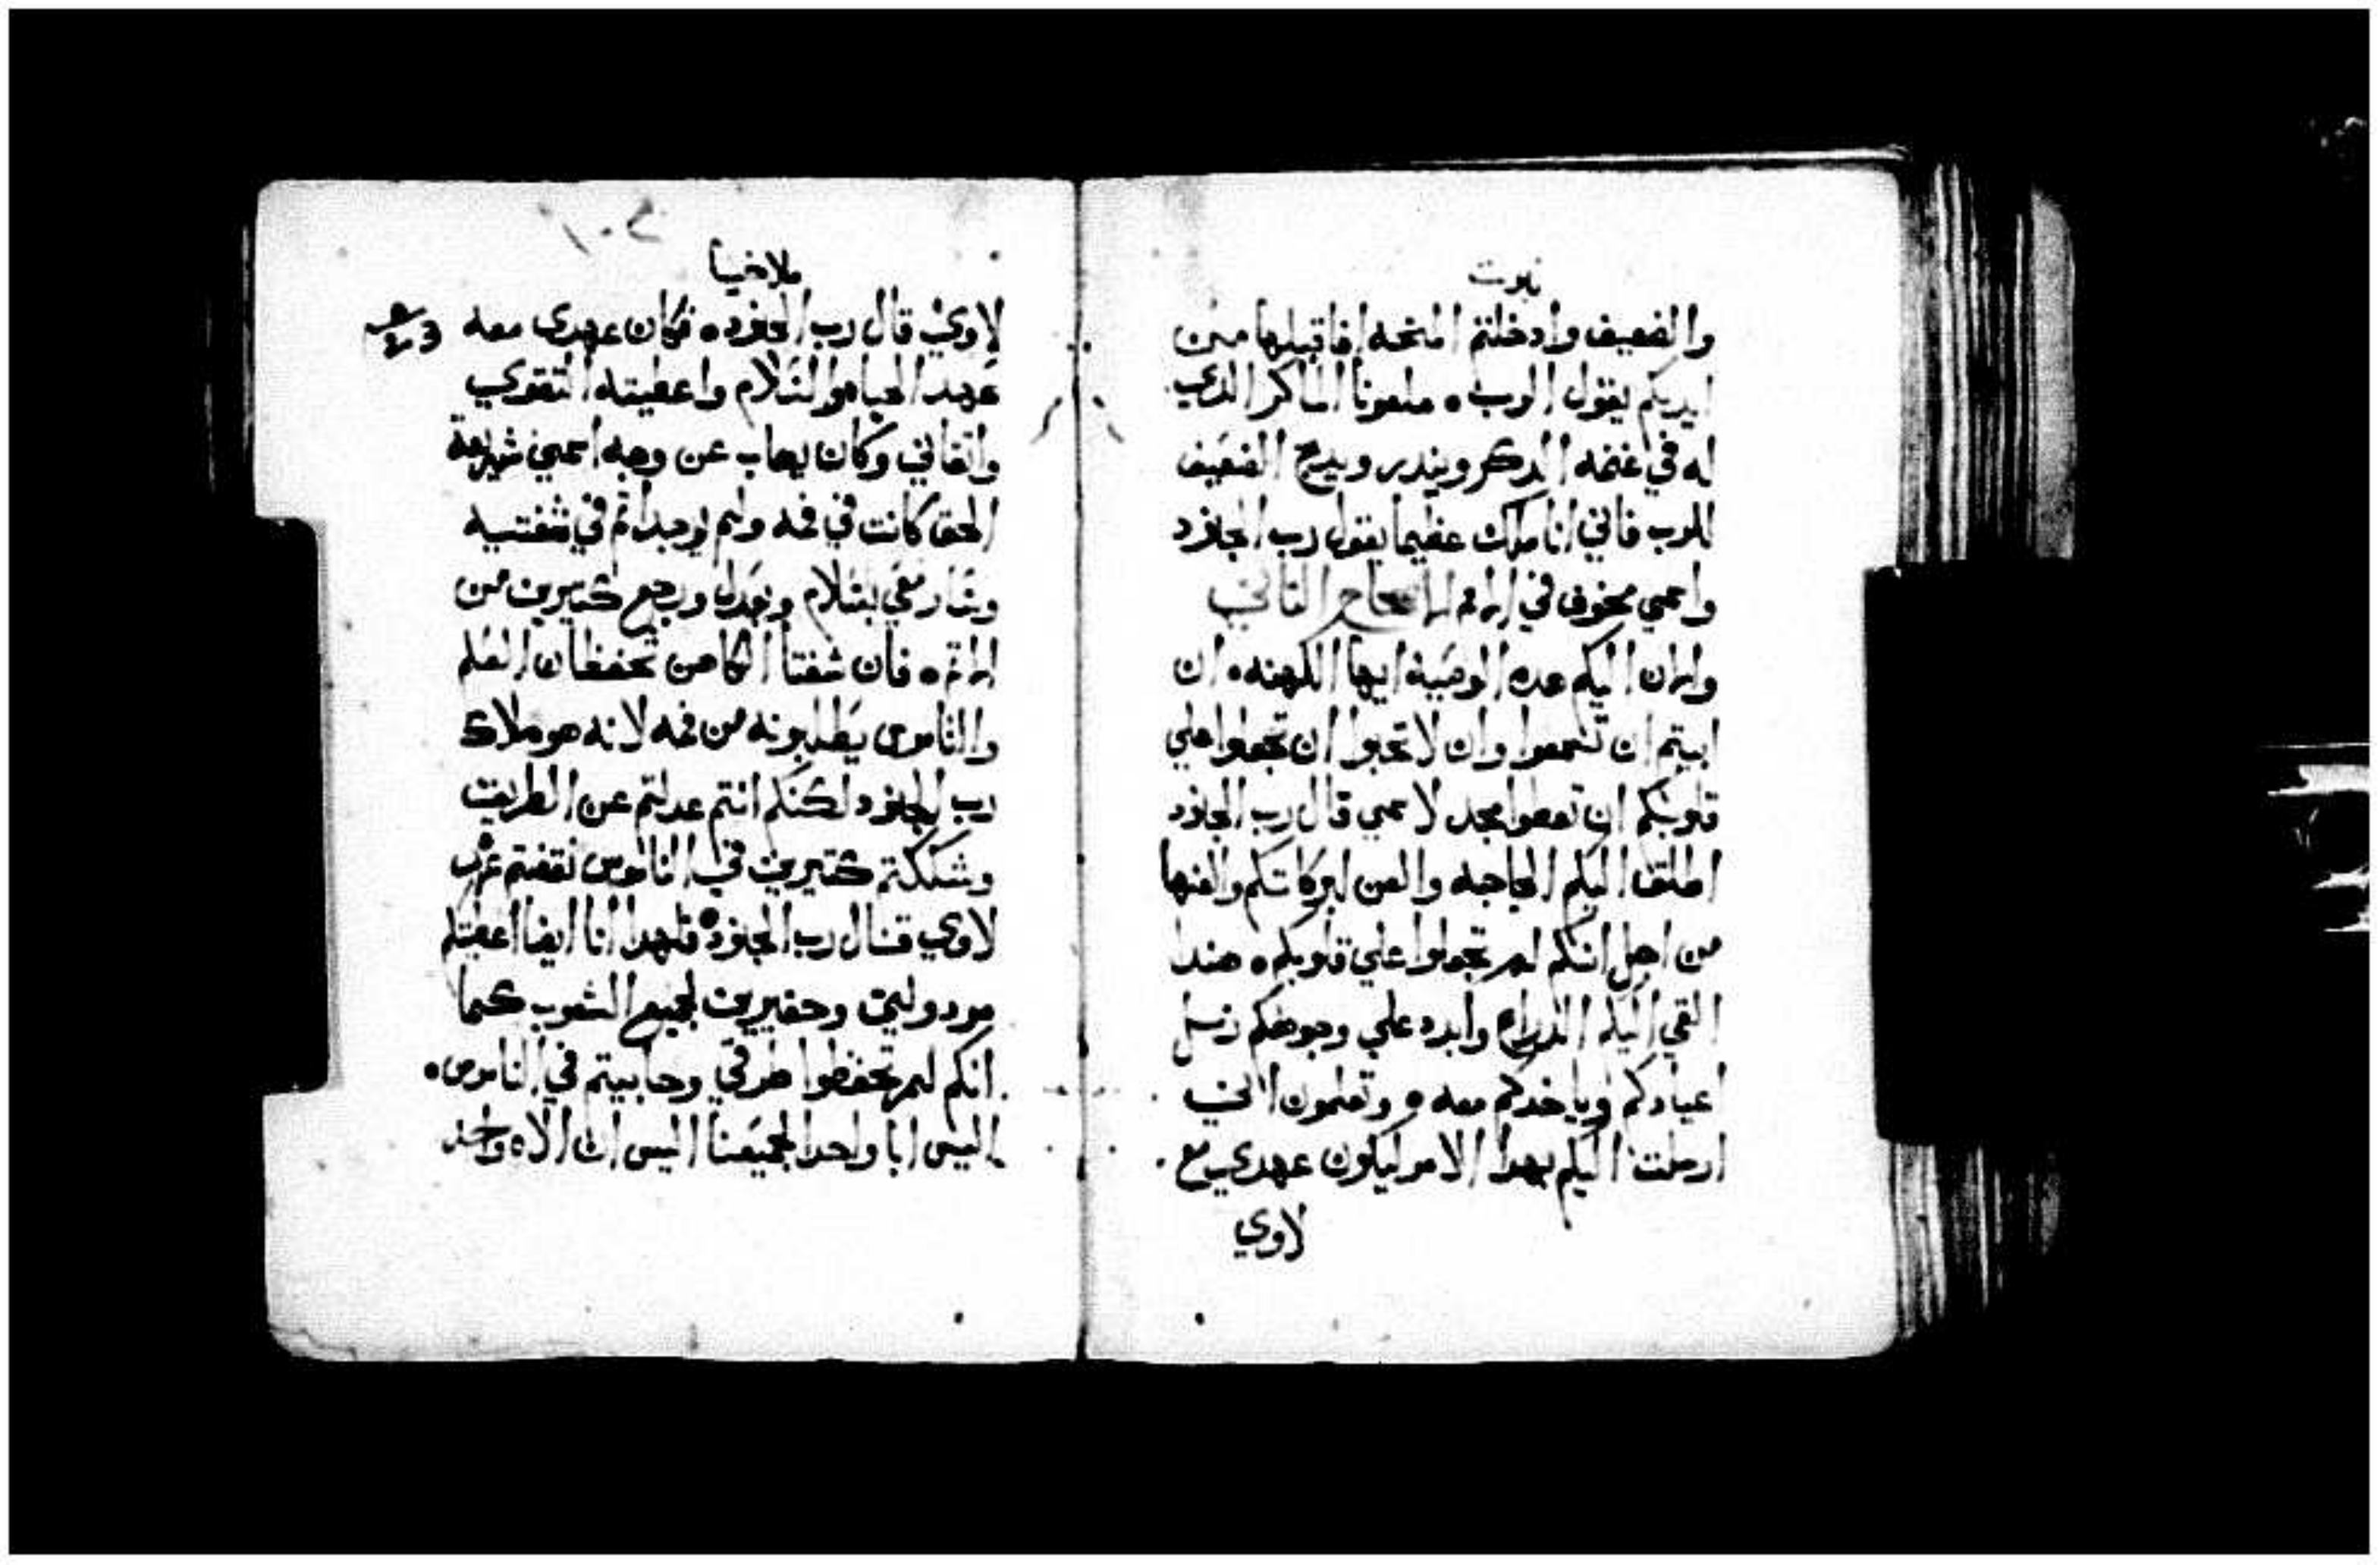 نبوت
والضعيف وادخلتم المنحه افاقبلها من
ايديكم يقول الرب • ملعونا الماكر الذي
له في غنمه الدكر ويندر ويدبح الضعيف
للرب فاني انا ملك عظيما يقول رب الجنود
واسمي مخوف في الامم الاصحاح التاني
والان اليكم هده الوصية ايها الكهنه • ان
ابيتم ان تسمعوا وان لا تحبوا ان تجعلوا علي
قلوبكم ان تعطوا مجد لاسمي قال رب الجنود
اطلق اليكم الحاجه والعن لبركاتكم والعنها
من اجل انكم لم تجعلوا علي قلوبكم • هندا
القي اليكم الدراع وابدد علي وجوهكم زبل
اعيادكم وياخدكم معه • وتعلمون اني
ارسلت اليكم بهدا الامر ليكون عهدي مع
لاوي
١٠٢
ملاخيا
لاوي قال رب الجنود • فكان عهدي معه
عهد الحياه والسلام واعطيته التقوي
واتقاني وكان يهاب عن وجه اسمي شريعة
الحق كانت في فمه ولم يوجد اتم في شفتيه
وسار معي بسلام وبعدل ورجع كتيرين من
الاتم • فان شفتا الكاهن تحفظان العلم
والناموس يطلبونه من فمه لانه هو ملاك
رب الجنود لكنكم انتم عدلتم عن الطريق
وشككتم كتيرين في الناموس نقضتم عهد
لاوي قال رب الجنود • فلهدا انا ايضا اعطيتكم
مردولين وحقيرين لجميع الشعوب كما
انكم لم تحفظوا طرقي وحابيتم في الناموس •
اليس ابا واحدا لجميعنا اليس ان الاه واحد